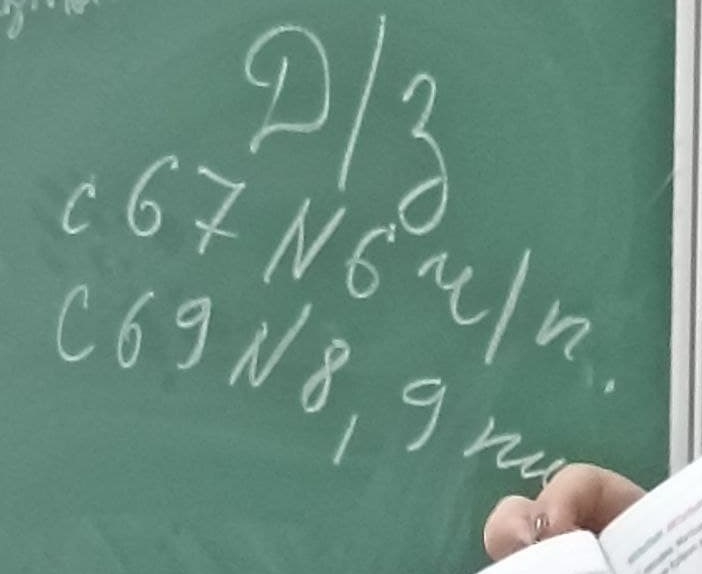 Д/з
с 67 N 6 ч/п.
С 69 N 8, 9